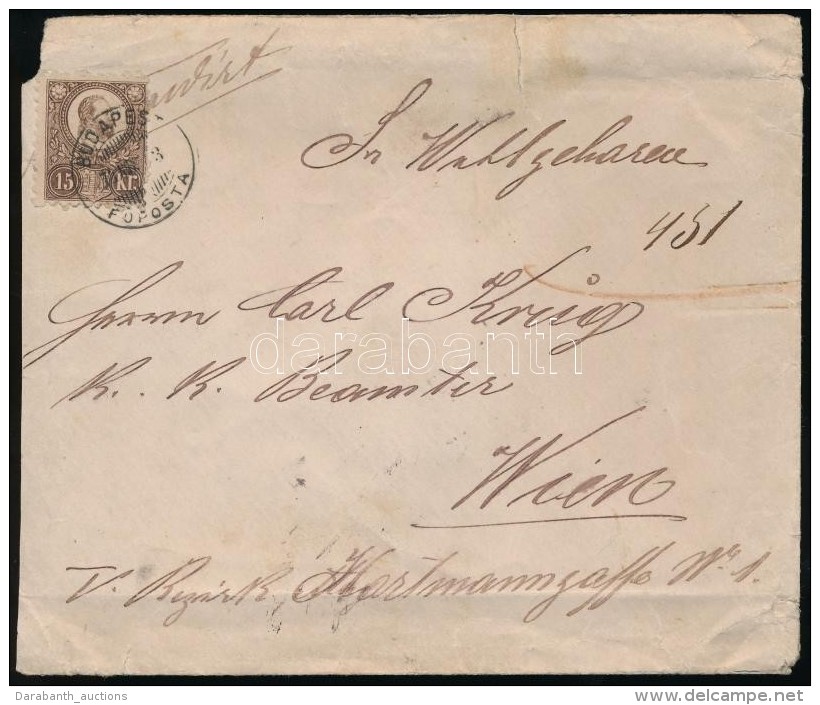 BUDAPEST
FŐPOSTA
15 KR.
Sr Wohlgeboren
451
Herrn Carl Krug
K. K. Beamter
Wien
V. Bezirk Hartmanngasse Nr 1.
darabanth
Darabanth_auctions
delcampe.net